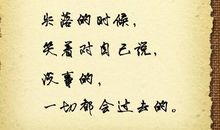 失落的时候，
笑着对自己说，
没事的，
一切都会过去的。